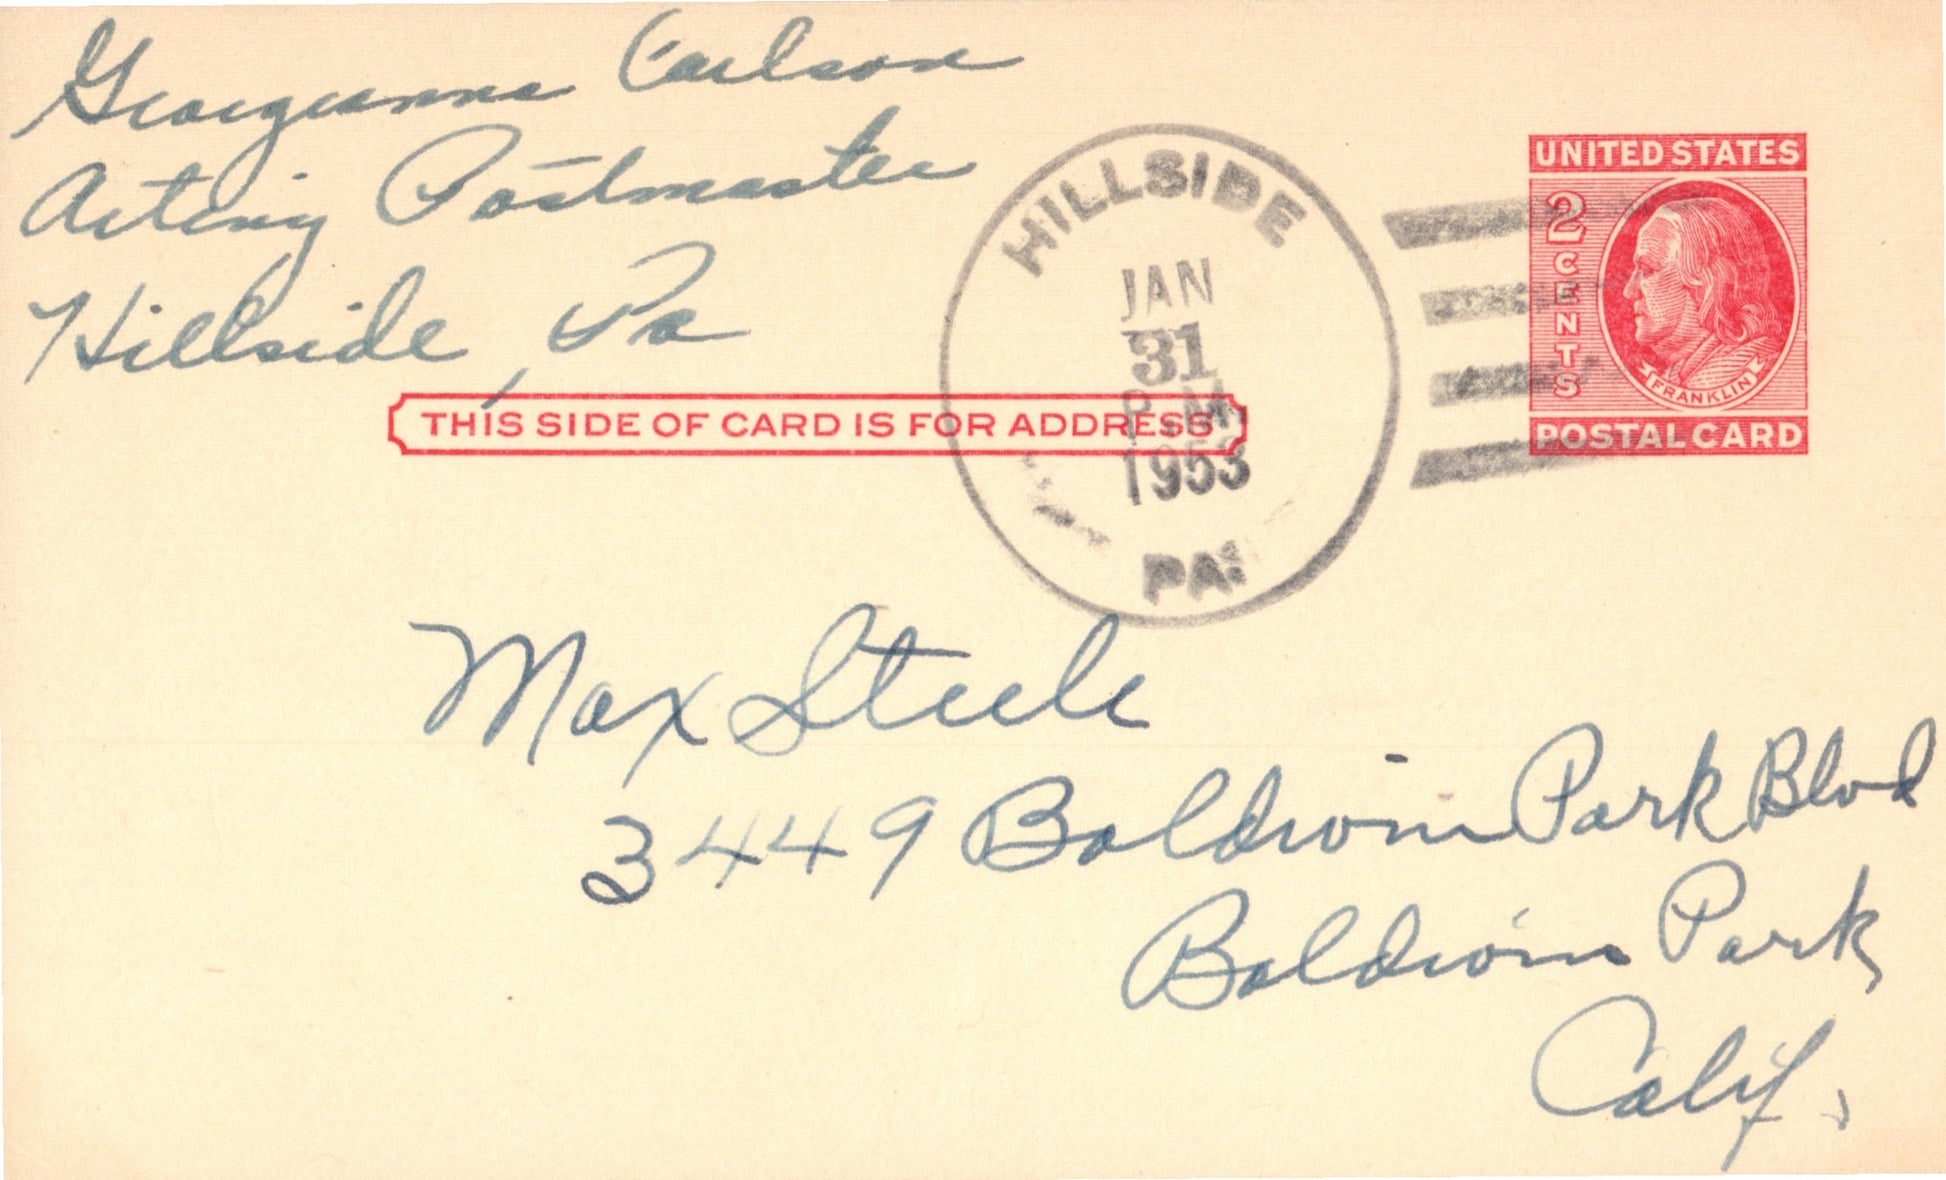 Georgeanna Carlson
Acting Postmaster
Hillside, Pa
THIS SIDE OF CARD IS FOR ADDRESS
HILLSIDE
JAN
31
P.M
1953
PA.
UNITED STATES
2 CENTS
FRANKLIN
POSTAL CARD
Max Steele
3449 Baldwin Park Blvd
Baldwin Park,
Calif.